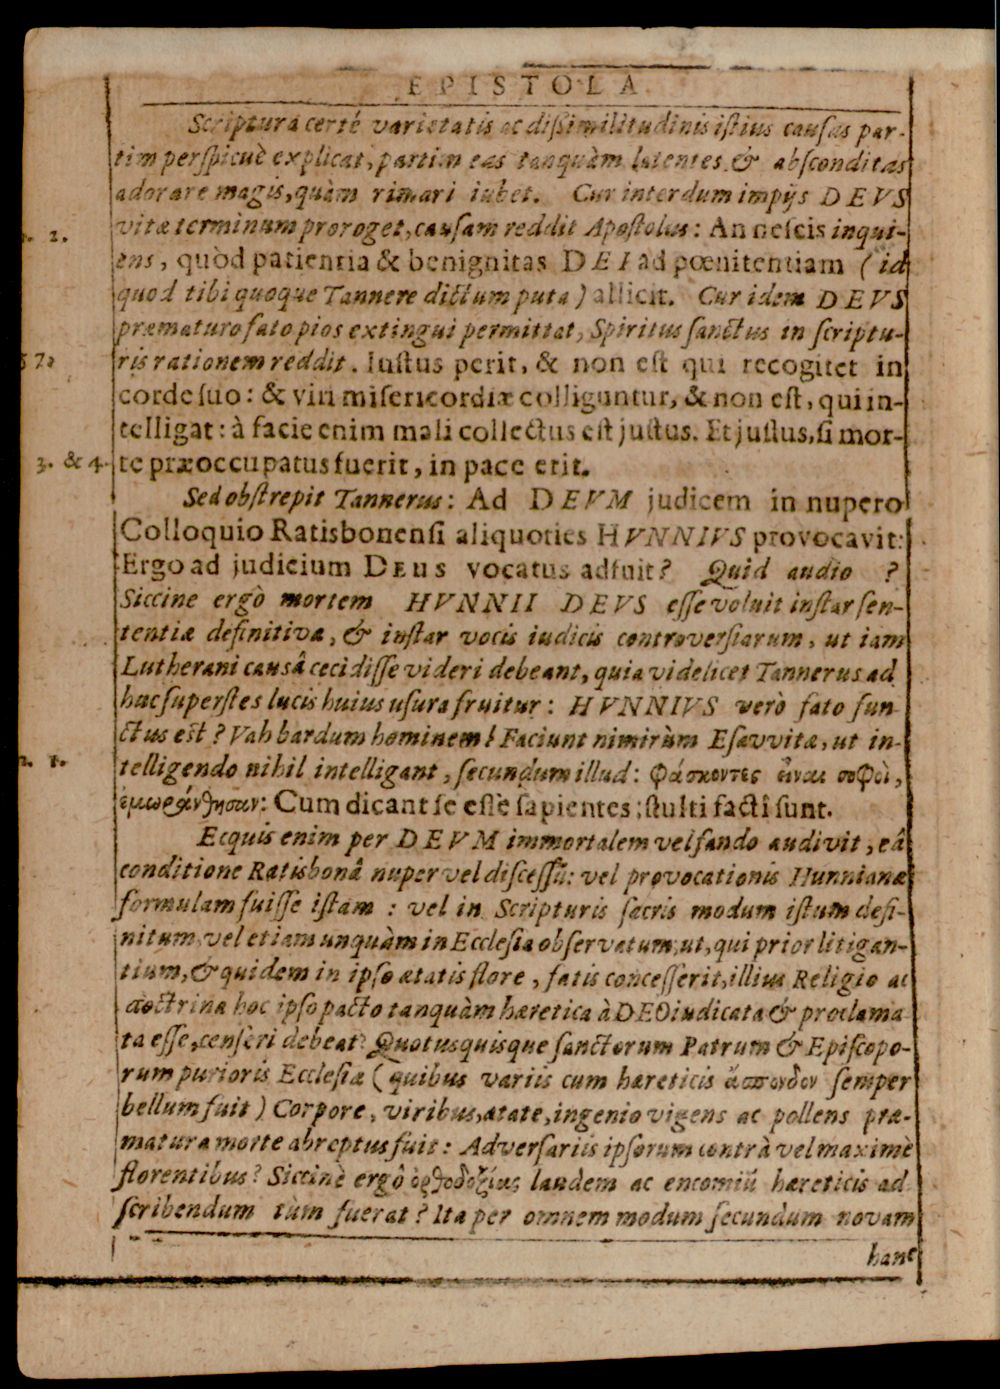 EPISTOLA
Scriptura certé varietatis ac dissimilitudinis istius causas par-
tim perspicuè explicat, partim eas tanquàm latentes & absconditas
adorare magis, quàm rimari iubet. Cur interdum impijs DEVS
vitæ terminum proroget, causam reddit Apostolus: An nescis inqui-
2.
ens, quòd patientia & benignitas DEI ad pœnitentiam (id
quod tibi quoque Tannere dictum puta) allicit. Cur idem DEVS
præmaturo fato pios extingui permittat, Spiritus sanctus in scriptu-
57.
ris rationem reddit. Iustus perit, & non est qui recogitet in
corde suo: & viri misericordiæ colliguntur, & non est, qui in-
telligat: à facie enim mali collectus est justus. Et justus, si mor-
3. & 4.
te præoccupatus fuerit, in pace erit.
Sed obstrepit Tannerus: Ad DEVM judicem in nupero
Colloquio Ratisbonensi aliquoties HVNNIVS provocavit:
Ergo ad judicium DEUS vocatus adfuit? Quid audio ?
Siccine ergò mortem HVNNII DEVS esse voluit instar sen-
tentiæ definitivæ, & instar vocis iudicis controversiarum, ut iam
Lutherani causâ cecidisse videri debeant, quia videlicet Tannerus ad
huc superstes lucis huius usura fruitur: HVNNIVS verò fato fun
ctus est? Vah bardum hominem! Faciunt nimirùm Esavvitæ, ut in-
2. 1.
telligendo nihil intelligant, secundum illud: φάσκοντες εἶναι σοφοὶ,
ἐμωράνθησαν: Cum dicant se esse sapientes; stulti facti sunt.
Ecquis enim per DEVM immortalem vel fando audivit, eâ
conditione Ratisbonâ nuper vel discessū: vel provocationis Hunnianæ
formulam fuisse istam : vel in Scripturis sacris modum istum defi-
nitum, vel etiam unquàm in Ecclesia observatum, ut, qui prior litigan-
tium, & quidem in ipso ætatis flore, fatis concesserit, illius Religio ac
doctrina hoc ipso pacto tanquàm hæretica à DEO iudicata & proclama
ta esse, censeri debeat? Quotusquisque sanctorum Patrum & Episcopo-
rum purioris Ecclesiæ (quibus variis cum hæreticis ἄσπονδον semper
bellum fuit) Corpore, viribus, ætate, ingenio vigens ac pollens præ-
matura morte abreptus fuit: Adversariis ipsorum contrà vel maximè
florentibus? Siccinè ergò ὀρθοδοξίας laudem ac encomiū hæreticis ad
scribendum tùm fuerat? Ita per omnem modum secundum novam
hanc